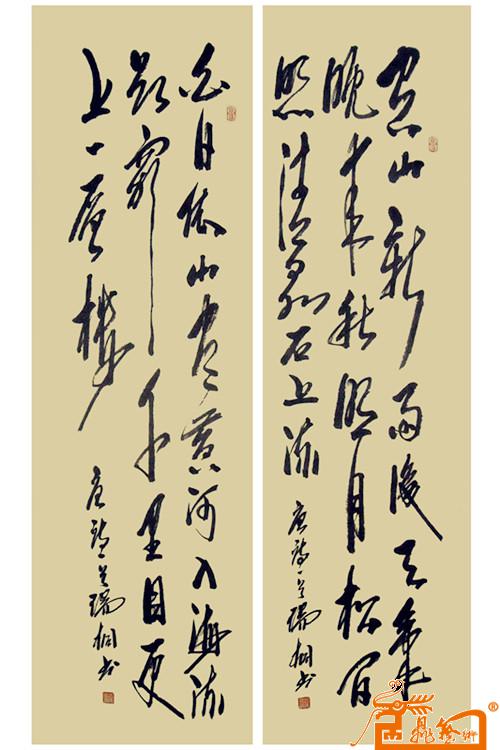 空山新雨後天氣
晚来秋明月松间
照清泉石上流
唐诗一首瑞桐书
白日依山尽黄河入海流
欲穷千里目更
上一层楼
唐诗一首瑞桐书